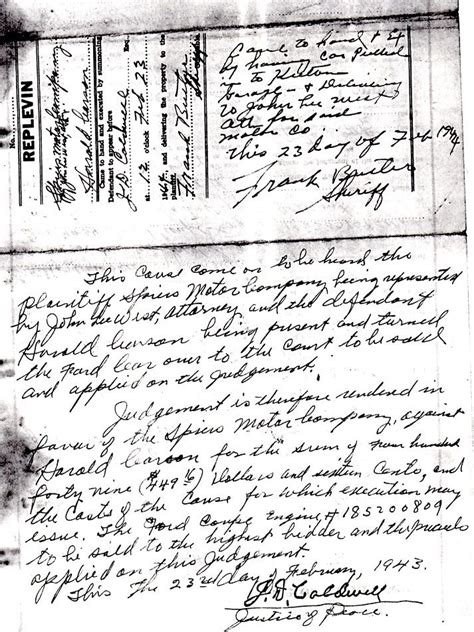 REPLEVIN
Spiers Motor Company
Harold Carson
Came to hand and executed by summoning
Defendant to appear before
J D Caldwell Esq.
at 12 o'clock Feb 23
and delivering the property to the
plaintiff.
Frank Butler
Sheriff
Came to Hand & Ex
by having Car Pulled
to
Garage & Delivering
To John Lee West
Att for said
motor Co.
This 23 day of Feb
Frank Butler
Sheriff
This Cause come on to be heard the
plaintiff Spiers Motor Company being represented
by John Lee West, Attorney and the defendant
Harold Carson being present and turned
the Ford Car over to the Court to be sold
and applied on the Judgement.
Judgement is therefore rendered in
favor of the Spiers Motor Company, against
Harold Carson for the sum of Four hundred
forty nine ($449 16) Dollars and sixteen Cents, and
the Costs of the Cause for which execution may
issue. The Ford Coupe Engine # 185200809
to be sold to the highest bidder and the proceeds
applied on this Judgement.
This the 23rd day of February, 1943.
J. D. Caldwell
Justice of Peace.